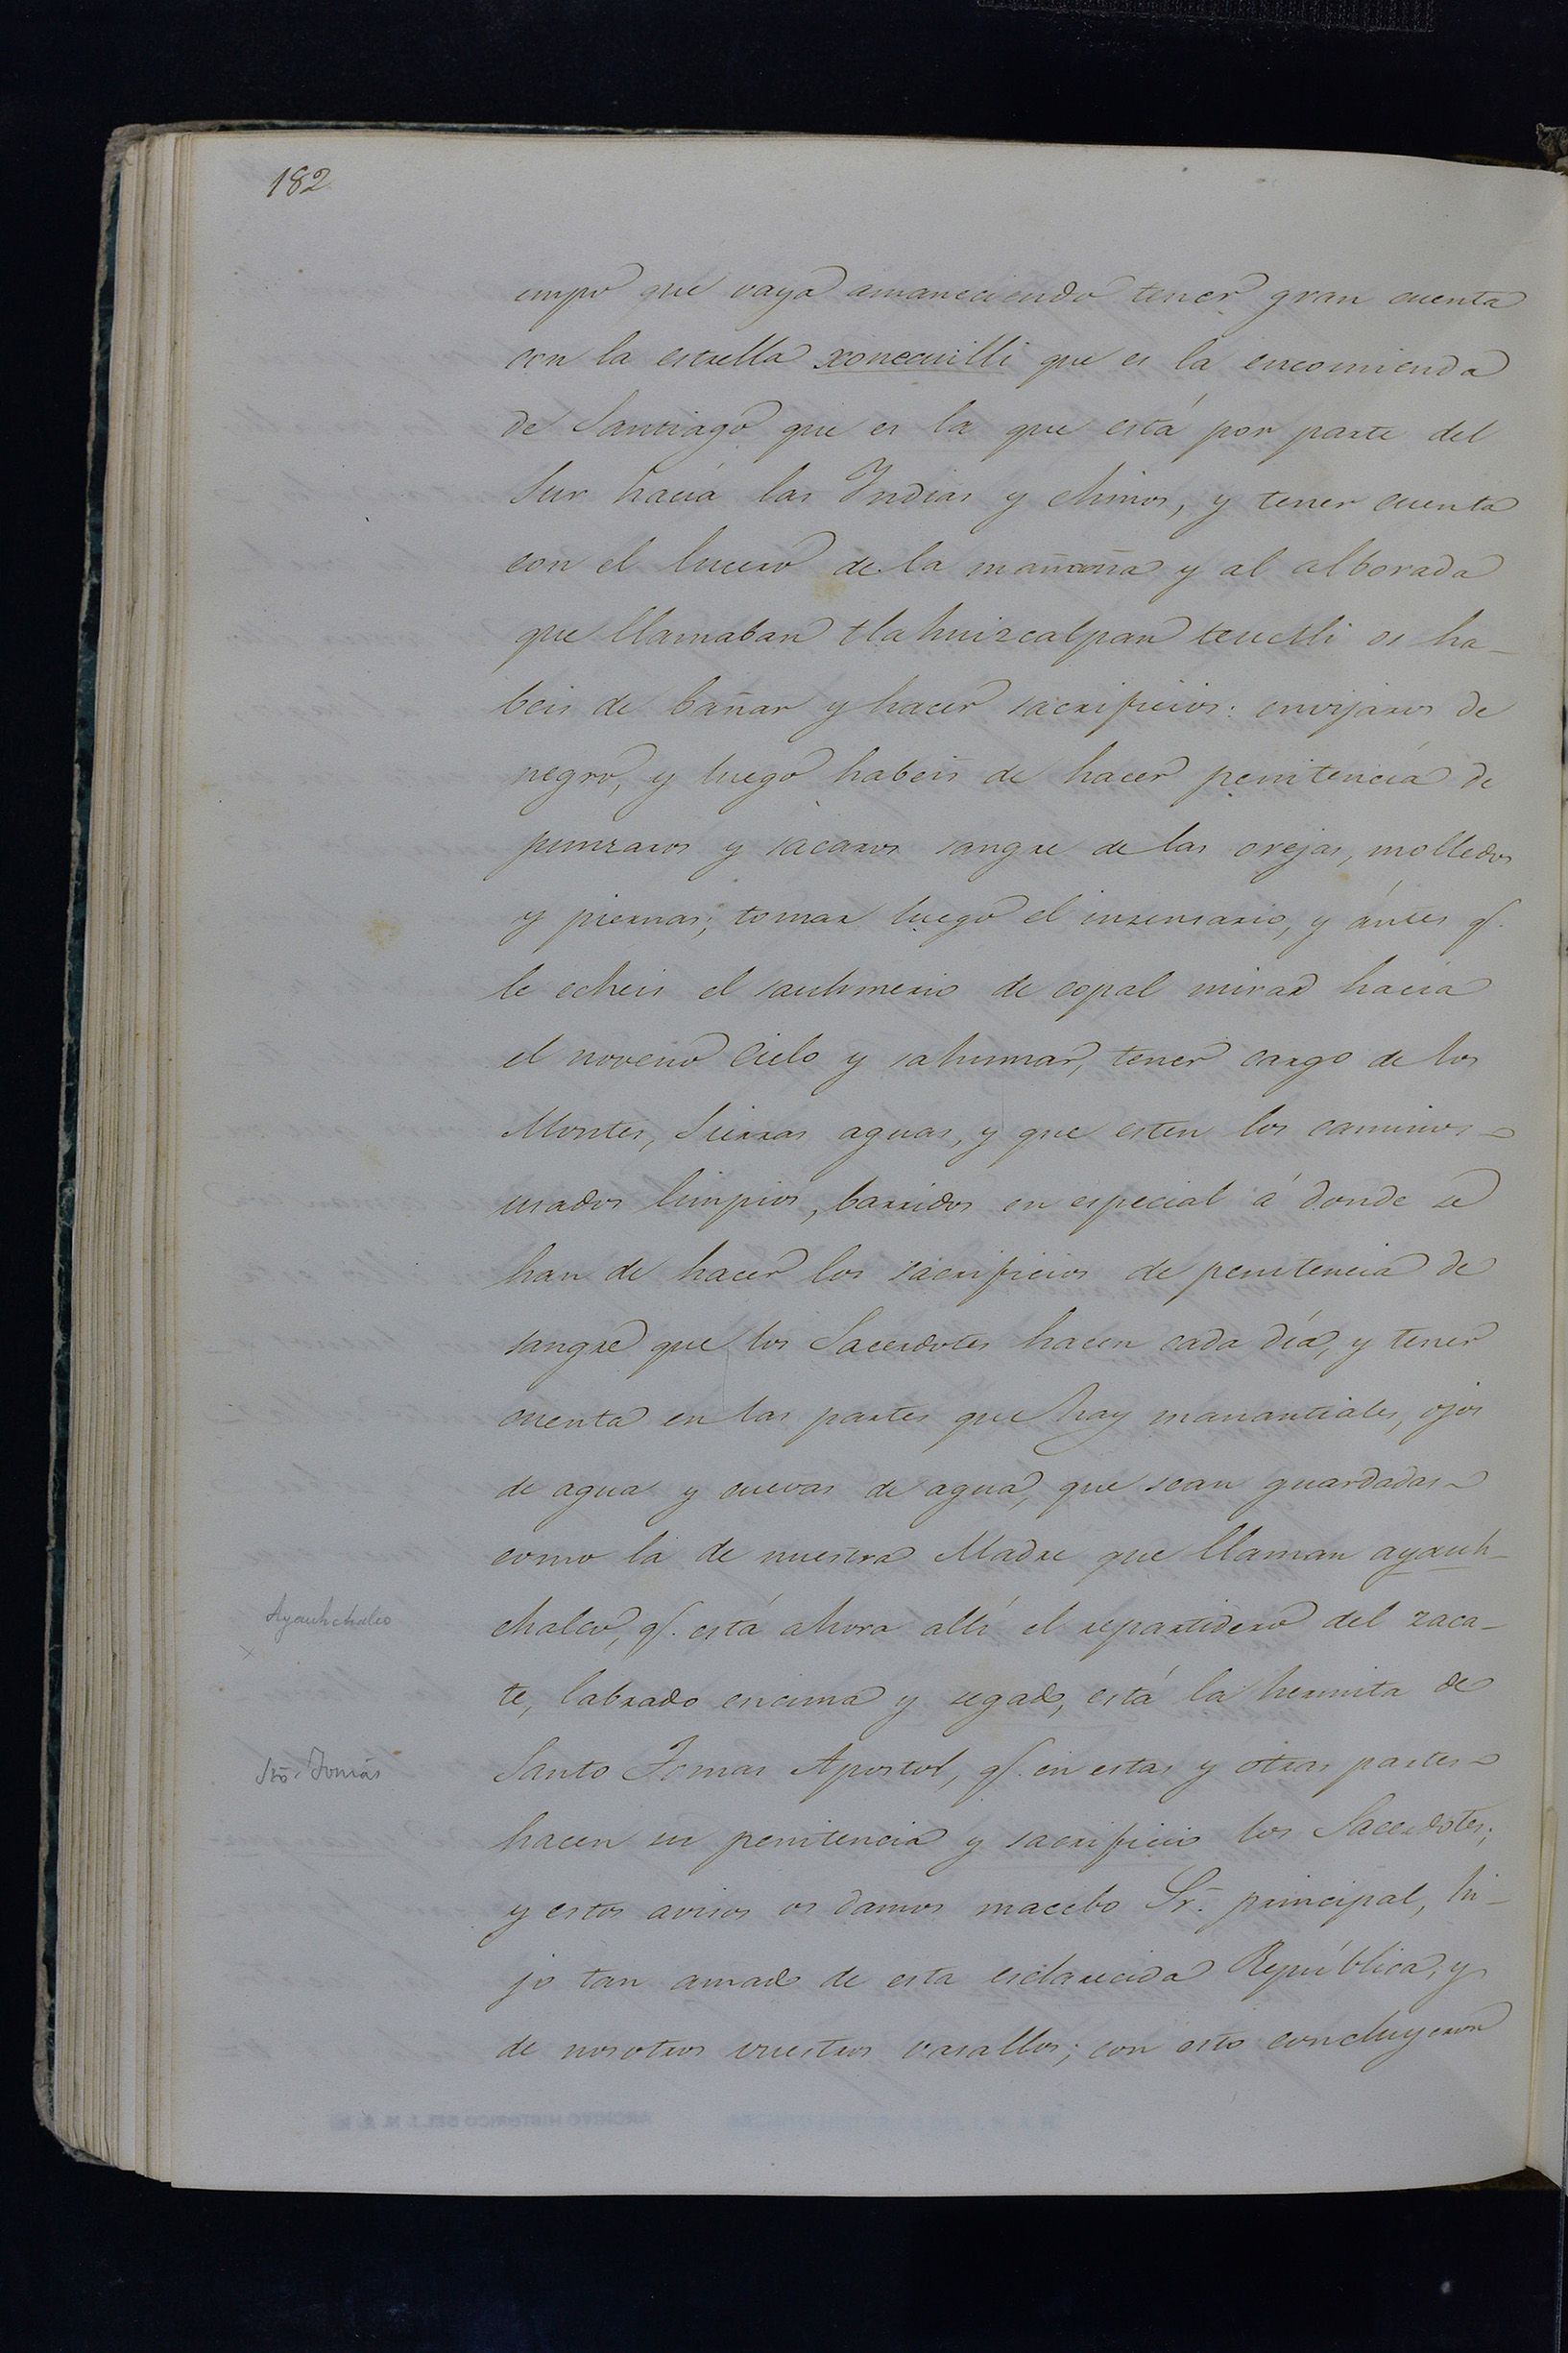 182
empo que vaya amaneciendo tener gran cuenta
con la estrella xonecuilli que es la encomienda
de Santiago que es la que está por parte del
Sur hacia las Indias y chinos, y tener cuenta
con el lucero de la mañana y al alborada
que llamaban tlahuizcalpan teuctli os ha-
beis de bañar y hacer sacrificios: envijaros de
negro, y luego habeis de hacer penitencia de
punzaros y sacaros sangre de las orejas, molledos
y piernas; tomar luego el insensario, y ántes q.
le echeis el sauhmerio de copal mirar hacia
el noveno Cielo y sahumar, tener cargo de los
Montes, Sierras aguas, y que esten los caminos
usados limpios, barridos en especial á donde se
han de hacer los sacrificios de penitencia de
sangre que los Sacerdotes hacen cada día, y tener
cuenta en las partes que hay manantiales, ojos
de agua y cuevas de agua, que sean guardadas
como la de nuestra Madre que llaman ayauh-
Ayauhchalco
chalco, q. está ahora allí el repartidero del zaca-
te, labrado encima y segado, está la hermita de
Sto. Tomás
Santo Tomas Apostol, q. en estas y otras partes
hacen su penitencia y sacrificio los Sacerdotes;
y estos avisos os damos macebo Sr. principal, hi-
jo tan amado de esta esclarecida República, y
de nosotros vuestros vasallos; con esto concluyeron